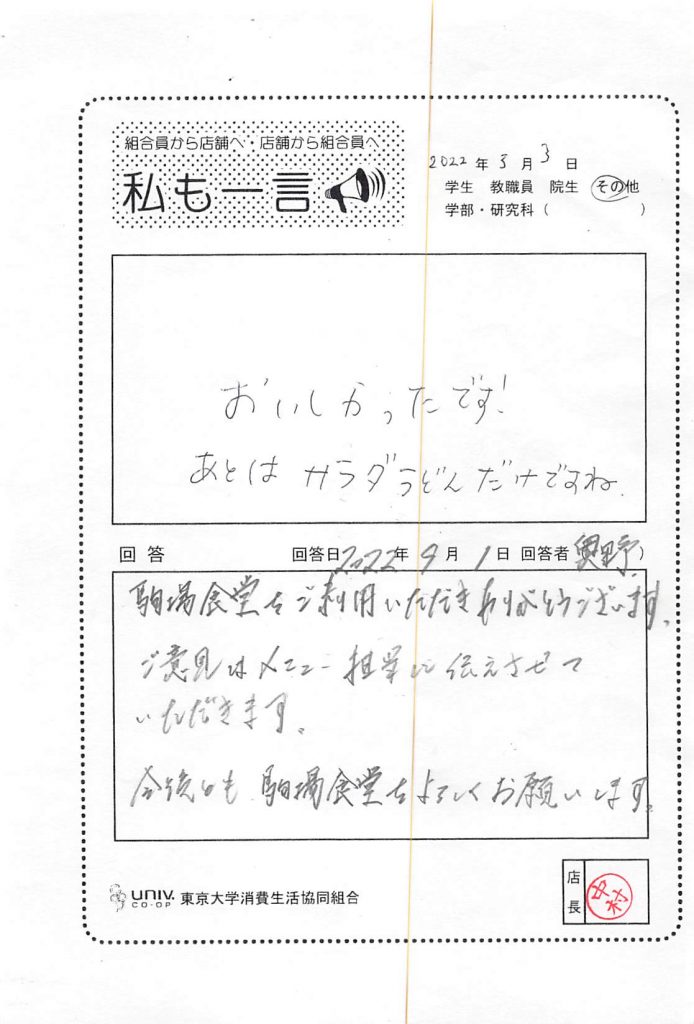 組合員から店舗へ・店舗から組合員へ
私も一言
2022年3月3日
学生 教職員 院生 その他
学部・研究科（　　　）
おいしかったです!
あとは サラダうどんだけですね.
回答 回答日2022年9月1日 回答者 奥野）
駒場食堂をご利用いただきありがとうございます。
ご意見はメニュー担当に伝えさせて
いただきます。
今後とも駒場食堂をよろしくお願いします。
UNIV.
CO-OP
東京大学消費生活協同組合
店長
中村